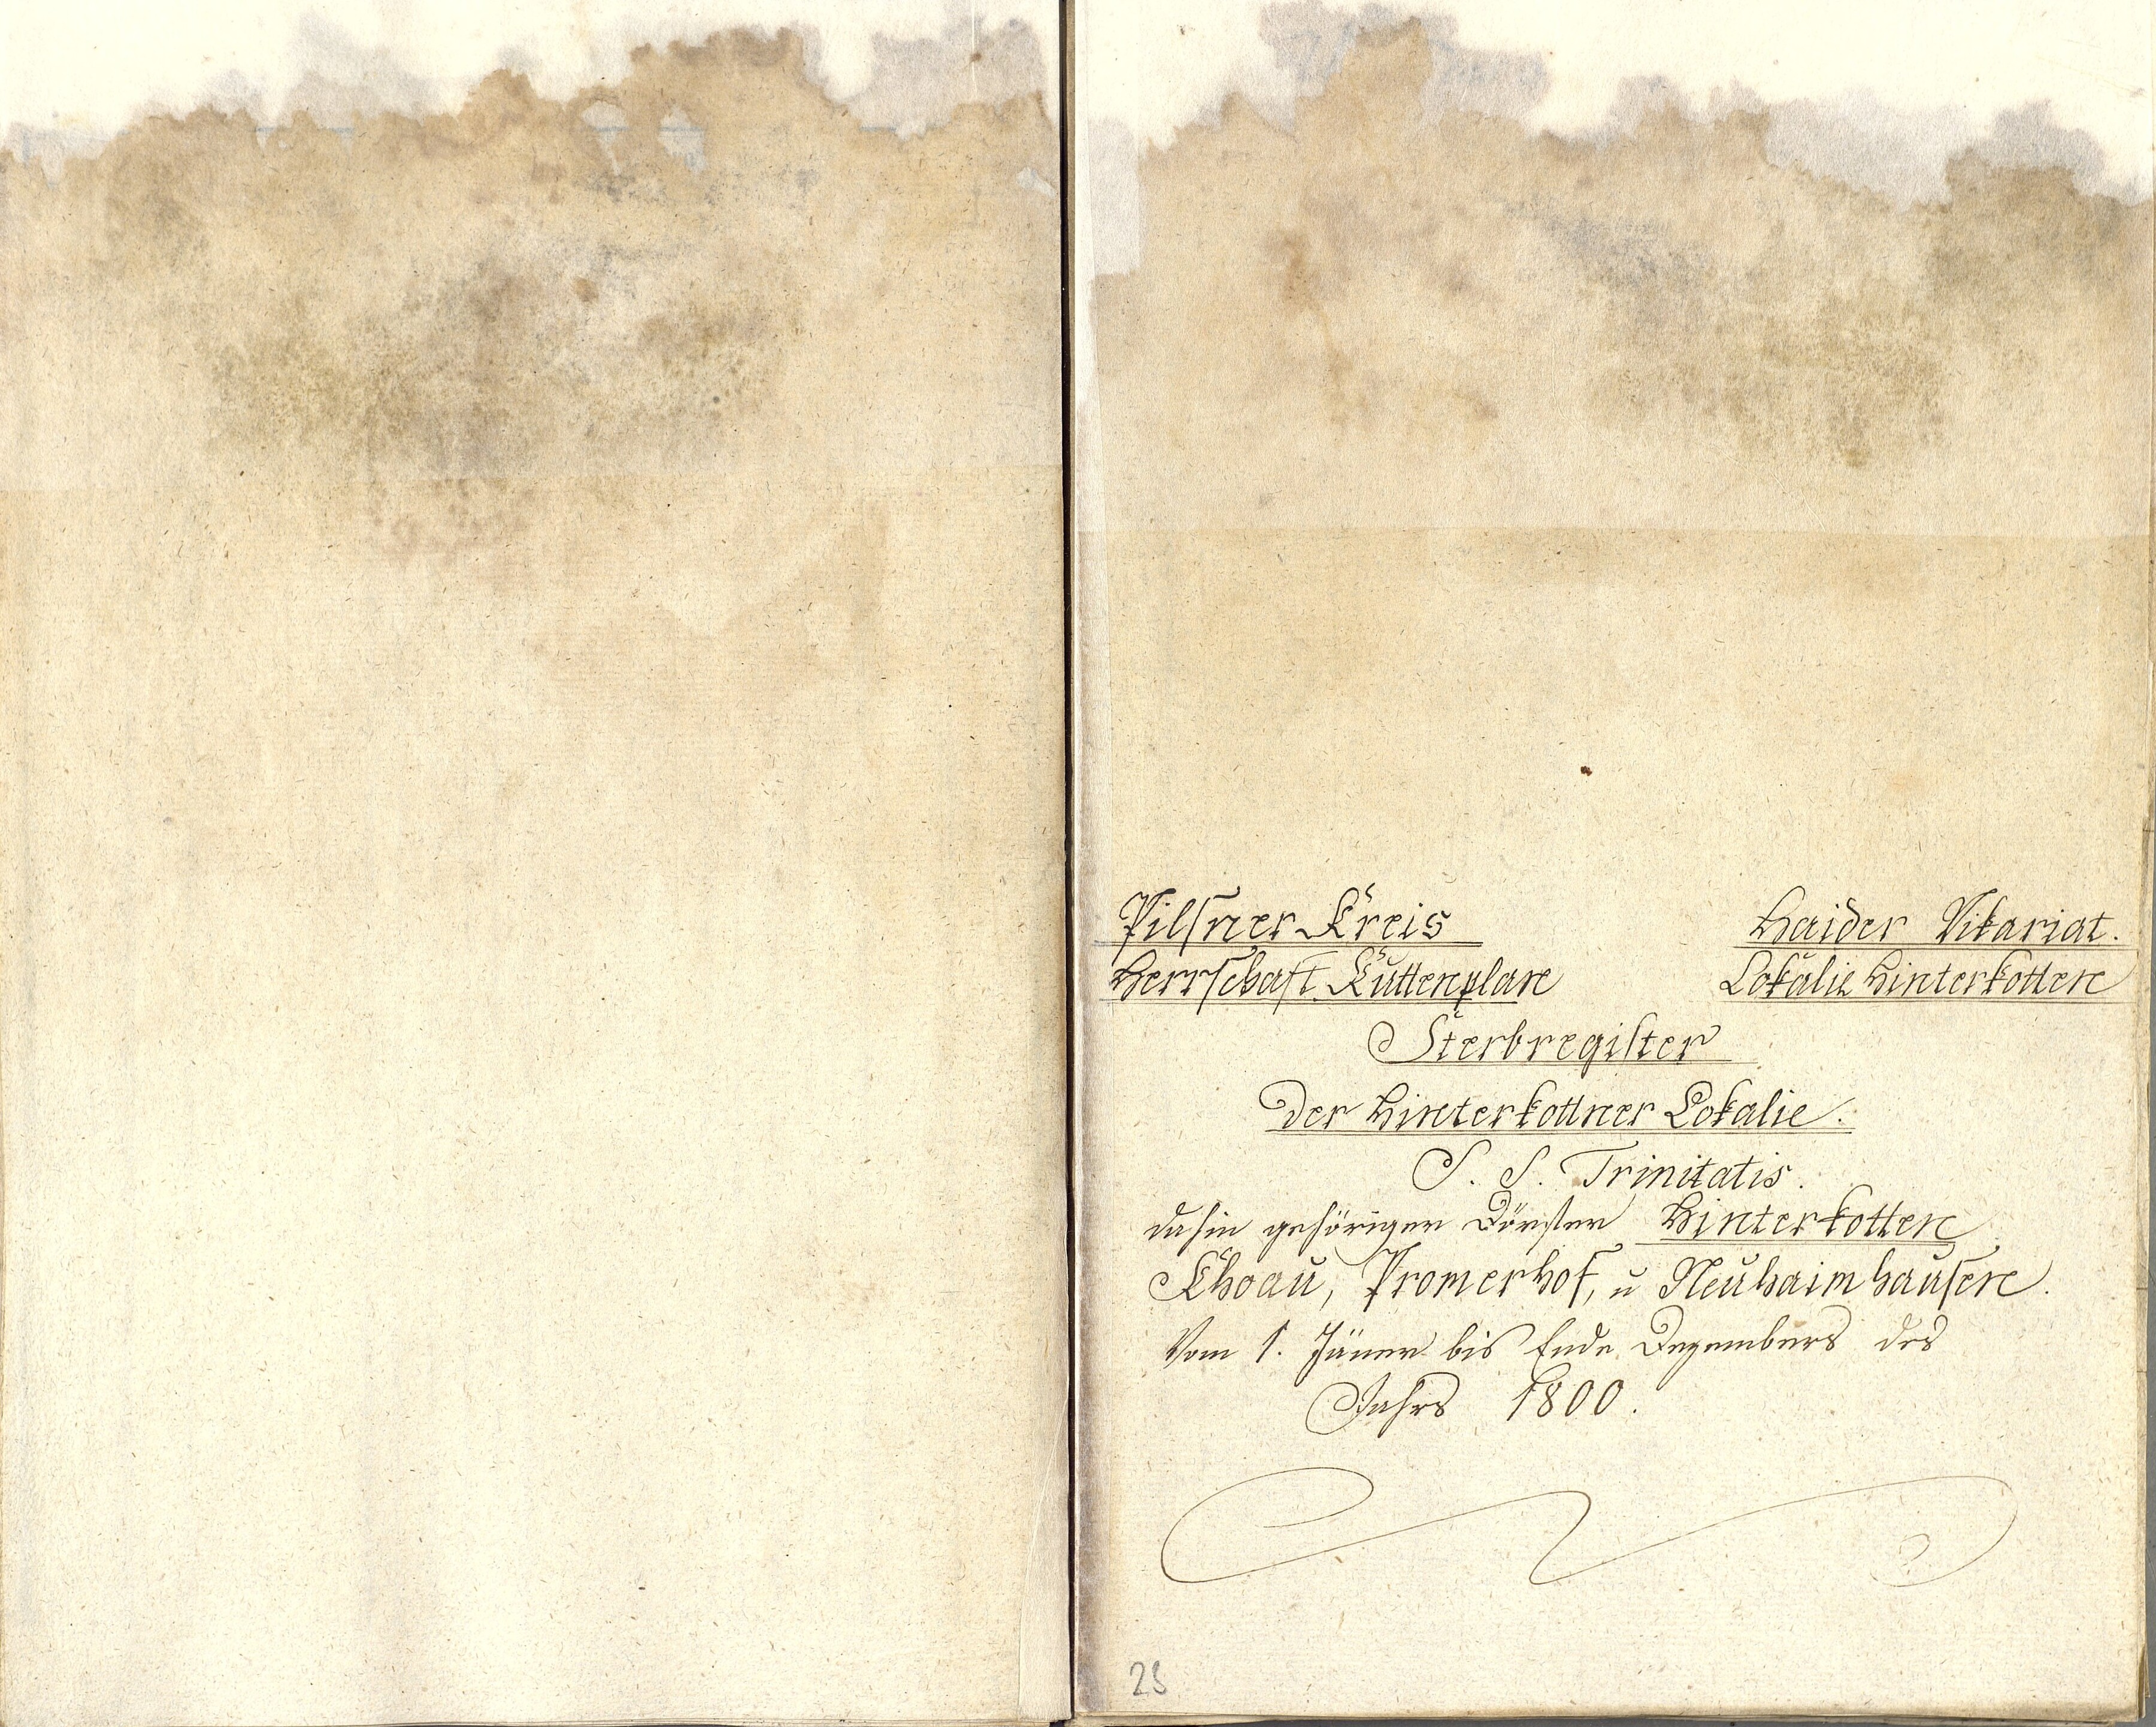 Pilsner Kreis
Haider Vikariat.
Herrschaft Kuttenplan
Lokalie Hinterkotten
Sterbregister
der Hinterkottner Lokalie.
S. S. Trinitatis.
dahin gehöriger Dörfer Hinterkotten
Khoau, Promerhof, u Neuhaimhausen.
Vom 1. Jäner bis Ende Dezembers des
Jahrs 1800.